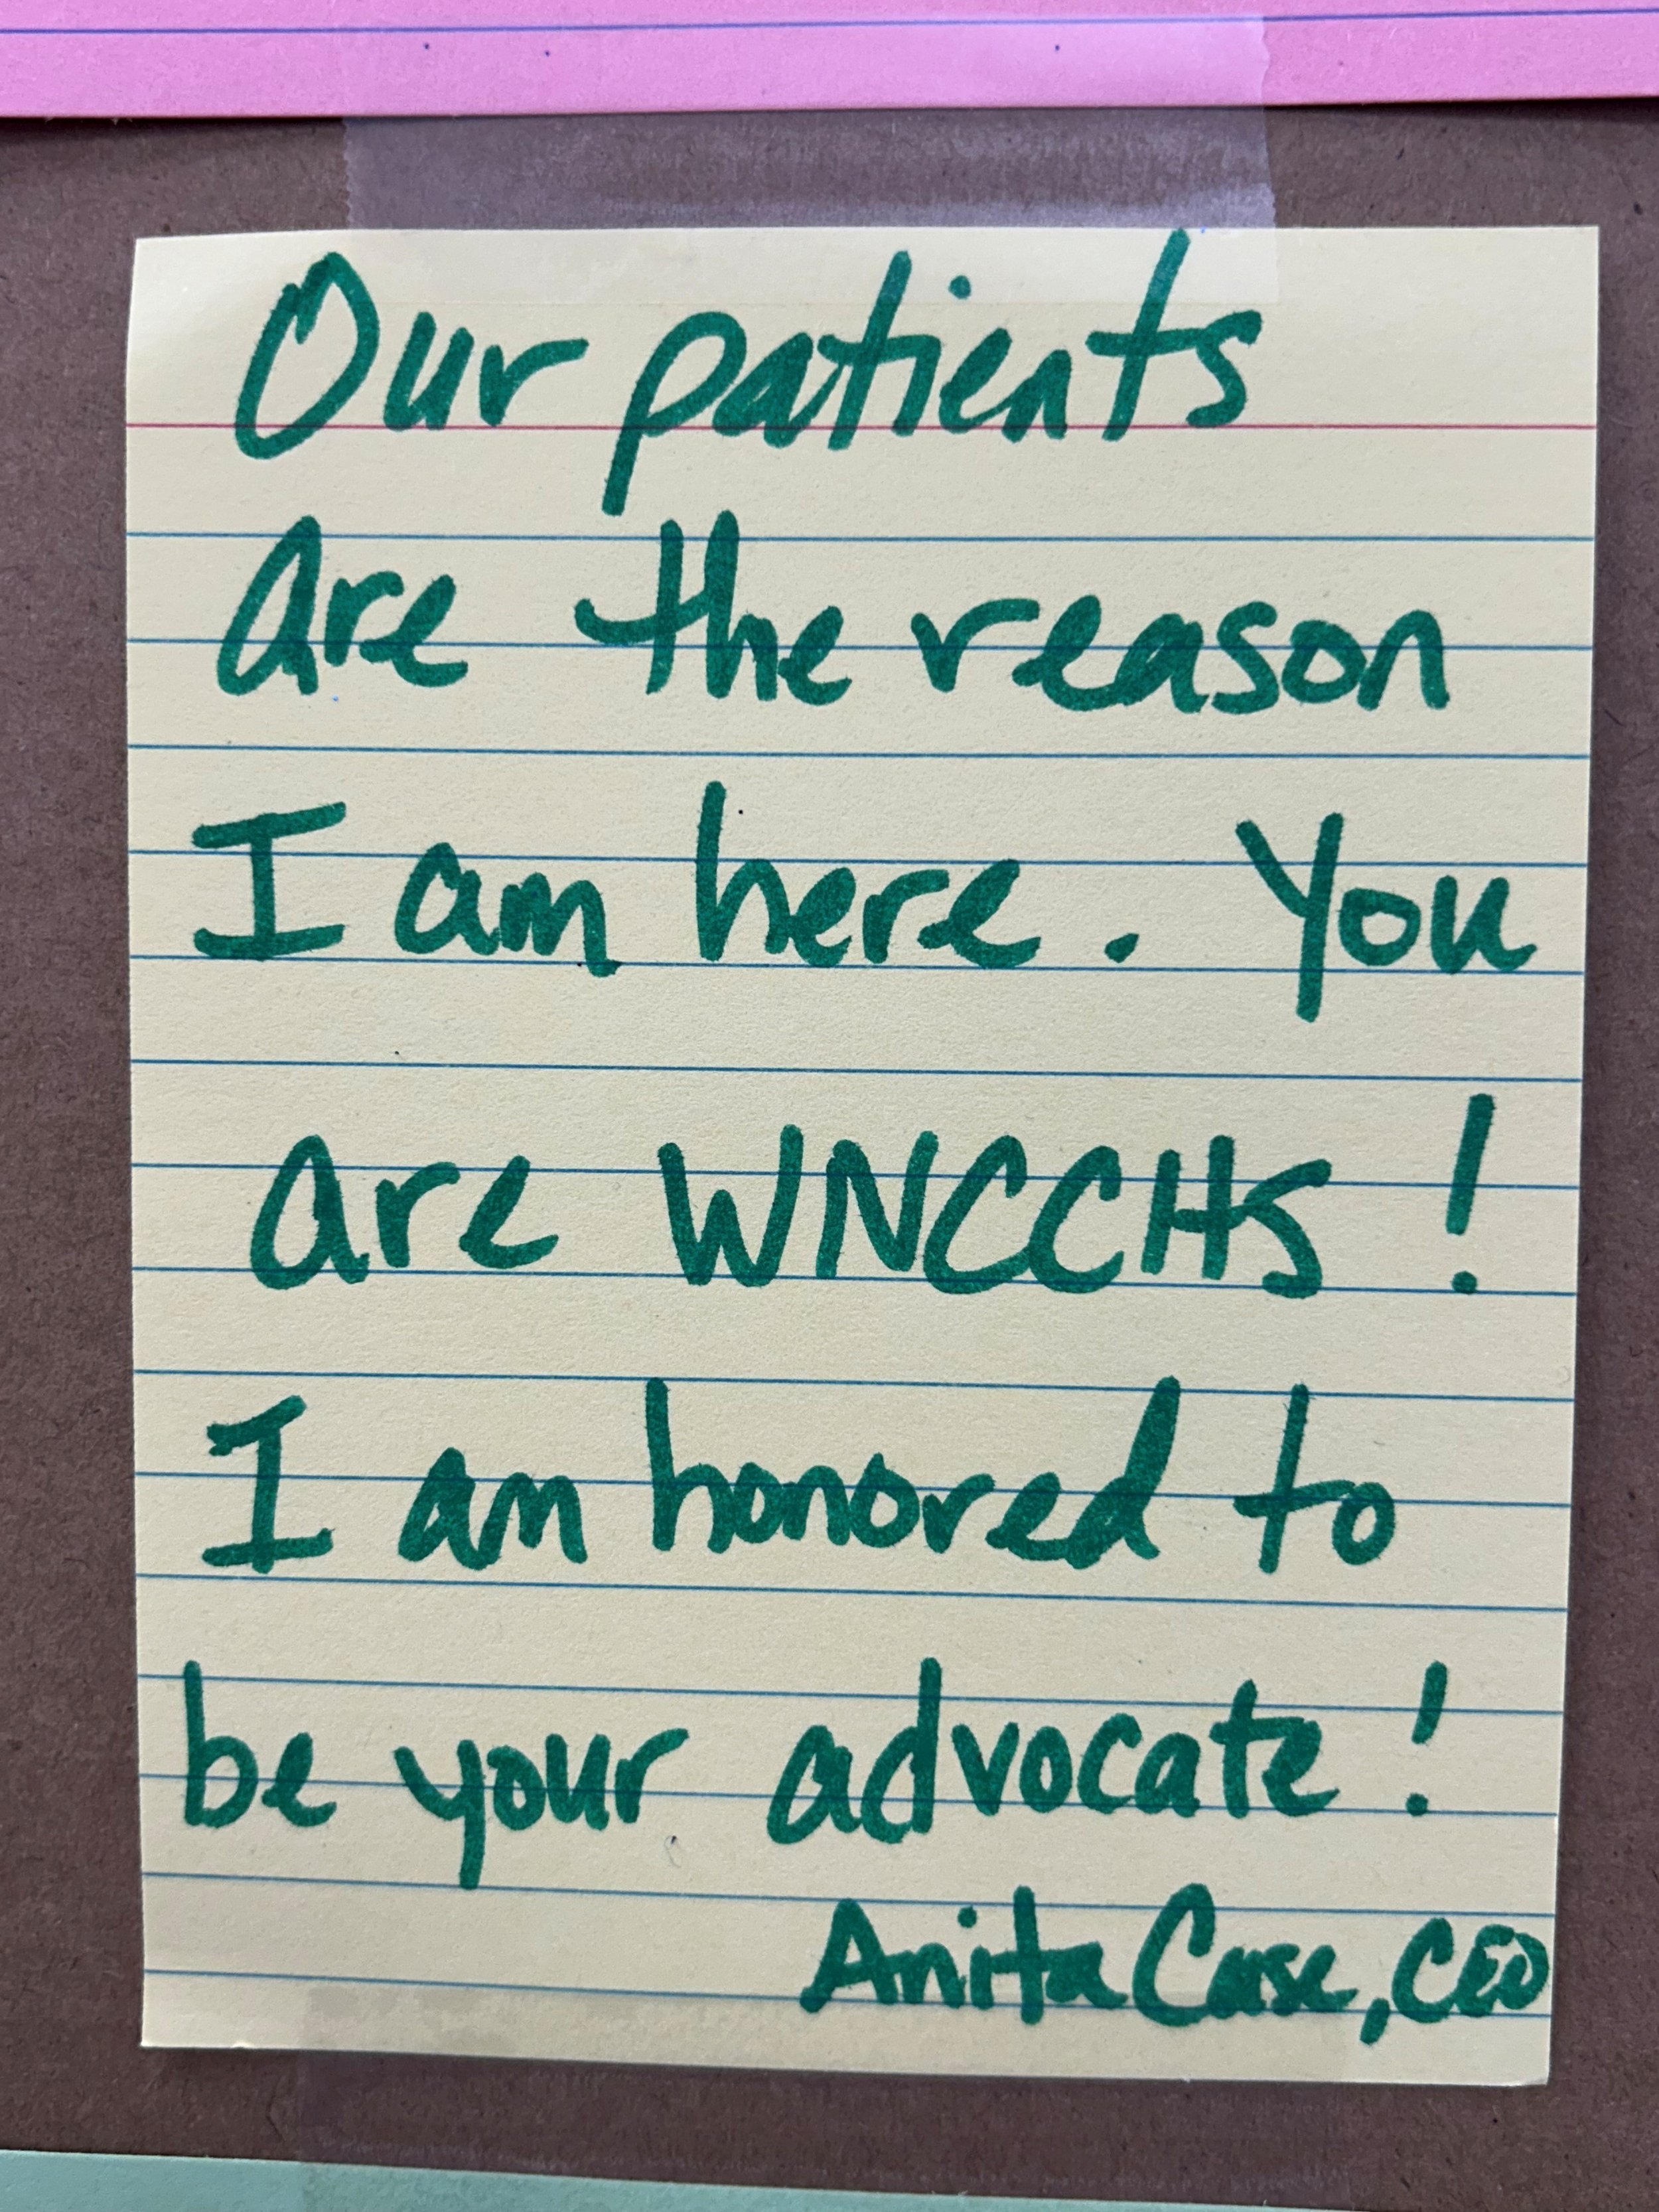 Our patients
are the reason
I am here. You
are WNCCHS!
I am honored to
be your advocate!
Anita Case, CEO